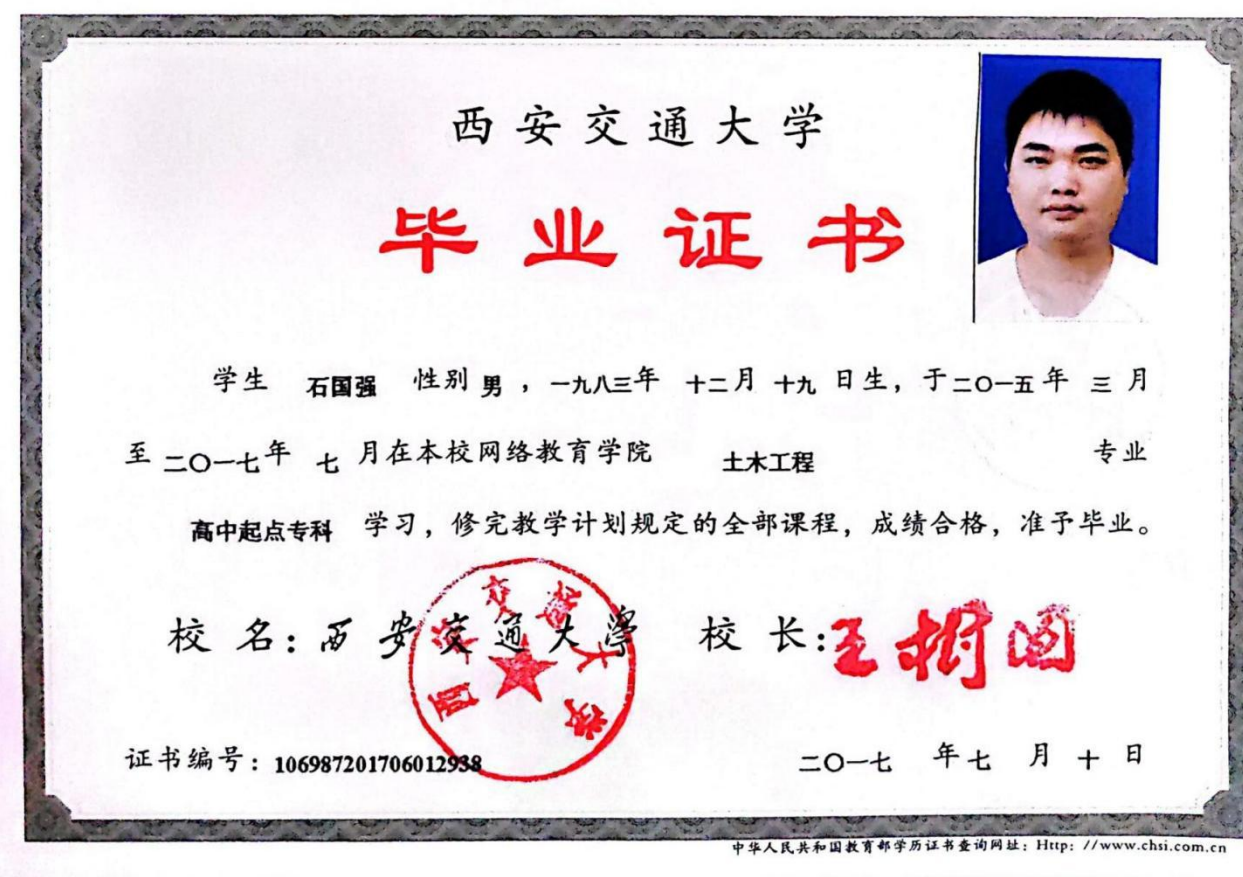 西安交通大学
毕业证书
学生 石国强 性别 男 ，一九八三年 十二月 十九 日生，于二〇一五 年 三 月
至 二〇一七年 七 月在本校网络教育学院 土木工程 专业
高中起点专科 学习，修完教学计划规定的全部课程，成绩合格，准予毕业。
西安交通大学
校 名：西安交通大学 校 长：王树国
证书编号：106987201706012938 二〇一七 年 七 月 十 日
中华人民共和国教育部学历证书查询网址：Http：//www.chsi.com.cn